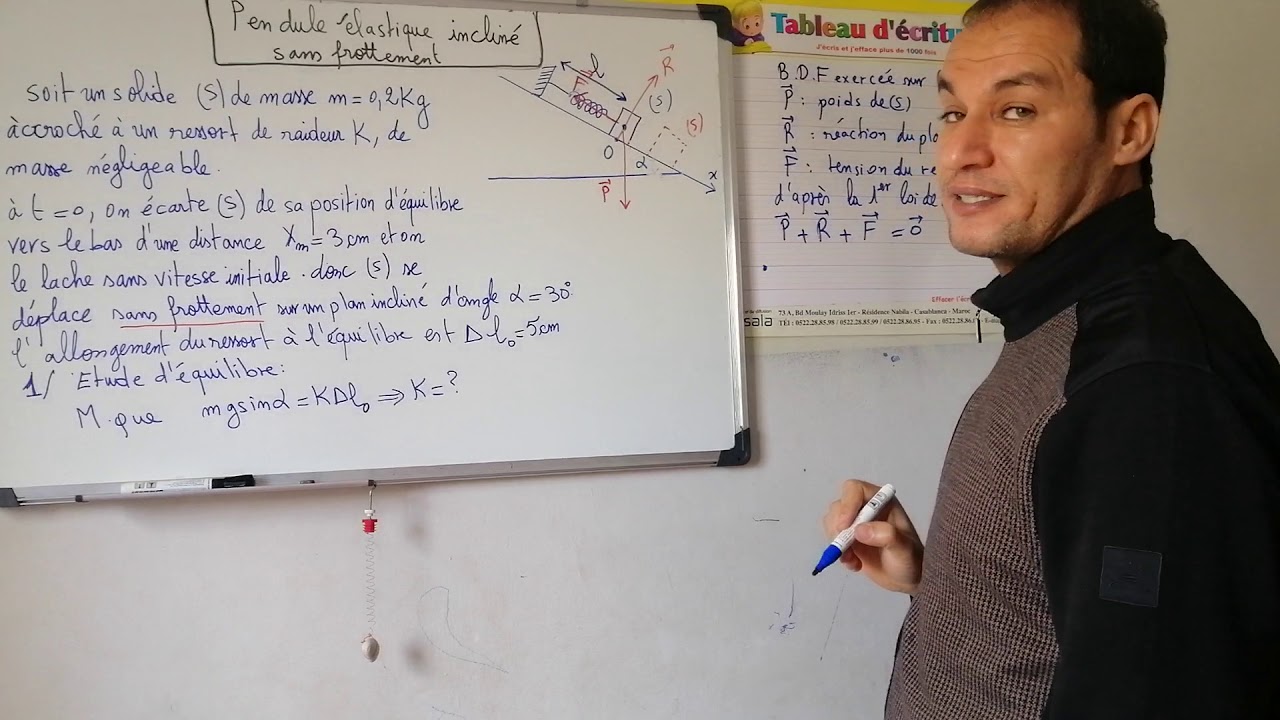 Pendule élastique incliné
sans frottement
soit un solide (S) de masse m = 0,2Kg
àccroché à un ressort de raideur K, de
masse négligeable.
à t = 0, on écarte (S) de sa position d'équilibre
vers le bas d'une distance Xm = 3cm et on
le lache sans vitesse initiale. donc (S) se
déplace sans frottement sur un plan incliné d'angle α = 30°.
l'allongement du ressort à l'équilibre est Δl₀ = 5cm
1/ Etude d'équilibre:
M.que mgsinα = KΔl₀ ⇒ K = ?
l
R⃗
F⃗
(S)
(S)
O
α
x
P⃗
Tableau d'écritu
J'écris et j'efface plus de 1000 fois
B.D.F exercée sur
P⃗ : poids de (S)
R⃗ : réaction du
F⃗ : tension du
d'après la 1er loi de
P⃗ + R⃗ + F⃗ = 0⃗
Effacer
73 A, Bd Moulay Idriss 1er - Résidence Nabila - Casablanca - Maroc
Tél : 0522.28.85.98 / 0522.28.85.99 / 0522.28.86.95 - Fax :